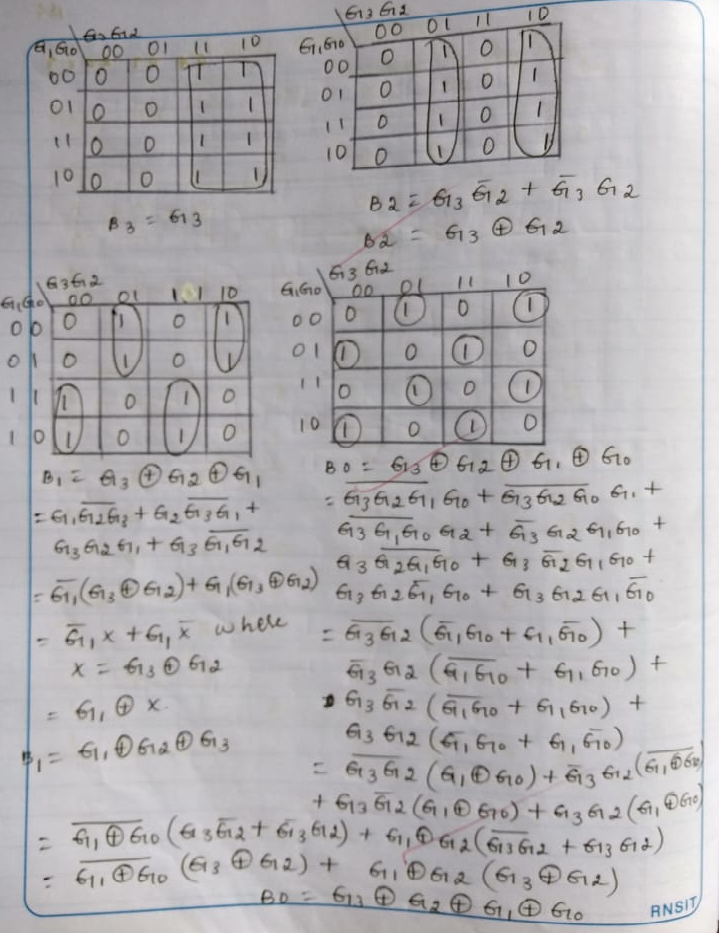 G3 G2
G1 G0 00 01 11 10
00 0 0 1 1
01 0 0 1 1
11 0 0 1 1
10 0 0 1 1
B3 = G3
G3 G2
G1 G0 00 01 11 10
00 0 1 0 1
01 0 1 0 1
11 0 1 0 1
10 0 1 0 1
B2 = G3 G̅2 + G̅3 G2
B2 = G3 ⊕ G2
G3 G2
G1 G0 00 01 11 10
00 0 1 0 1
01 0 1 0 1
11 1 0 1 0
10 1 0 1 0
B1 = G3 ⊕ G2 ⊕ G1
= G1 \overline{G2G3} + G2 \overline{G3G1} +
G3 G2 G1 + G3 \overline{G1G2}
= G̅1 (G3 ⊕ G2) + G1 (G3 ⊕ G2)
= G̅1 x + G1 x̅ where
x = G3 ⊕ G2
= G1 ⊕ x.
B1 = G1 ⊕ G2 ⊕ G3
G3 G2
G1 G0 00 01 11 10
00 0 1 0 1
01 1 0 1 0
11 0 1 0 1
10 1 0 1 0
B0 = G3 ⊕ G2 ⊕ G1 ⊕ G0
= \overline{G3G2G1} G0 + \overline{G3G2G0} G1 +
\overline{G3G1G0} G2 + G̅3 G2 G1 G0 +
G3 \overline{G2G1G0} + G3 G̅2 G1 G0 +
G3 G2 G̅1 G0 + G3 G2 G1 G̅0
= \overline{G3G2} (G̅1 G0 + G1 G̅0) +
G̅3 G2 (\overline{G1G0} + G1 G0) +
G3 G̅2 (\overline{G1G0} + G1 G0) +
G3 G2 (G̅1 G0 + G1 G̅0)
= \overline{G3G2} (G1 ⊕ G0) + G̅3 G2 (\overline{G1 ⊕ G0})
+ G3 G̅2 (G1 ⊕ G0) + G3 G2 (G1 ⊕ G0)
= \overline{G1 ⊕ G0} (G3 G̅2 + G̅3 G2) + G1 ⊕ G2 (\overline{G3G2} + G3 G2)
= \overline{G1 ⊕ G0} (G3 ⊕ G2) + G1 ⊕ G2 (G3 ⊕ G2)
B0 = G3 ⊕ G2 ⊕ G1 ⊕ G0
RNSIT